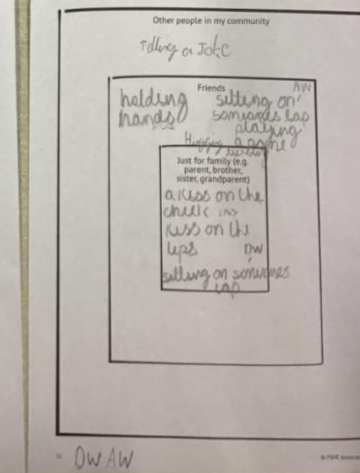 Other people in my community
Telling a Joke
Friends
AW
holding
hands
sitting on
someones lap
playing
a game
Just for family (e.g.
parent, brother,
sister, grandparent)
a kiss on the
cheek
kiss on the
lips DW
sitting on someones
lap
DW AW